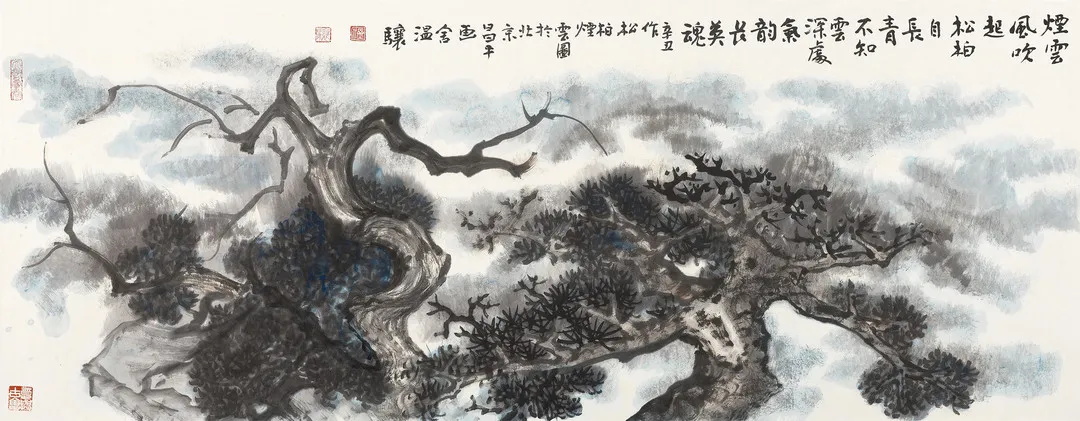 煙雲
風吹
起
松柏
自
長
青
不知
雲
深處
氣
韵
長
英
魂
辛丑
作
松
柏
煙
雲圖
於
北
京
昌平
画
舍
温
驤